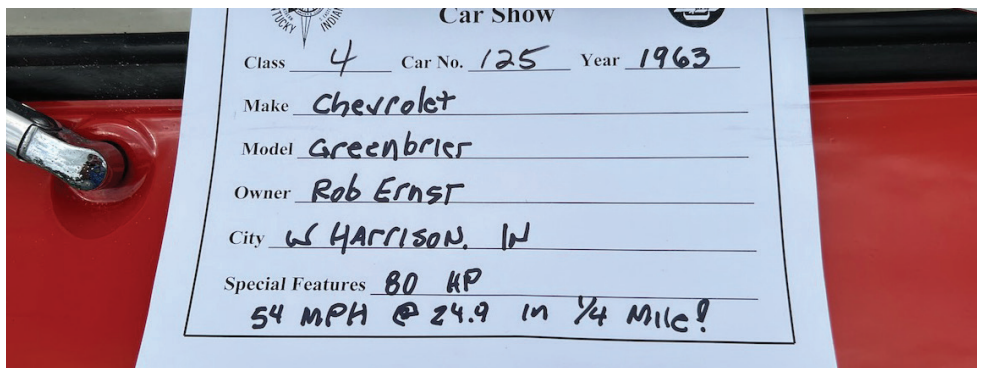 KENTUCKY INDIAN
Car Show
Class 4 Car No. 125 Year 1963
Make Chevrolet
Model Greenbrier
Owner Rob Ernst
City W HArrISON, IN
Special Features 80 HP
54 MPH @ 24.9 in 1/4 Mile!